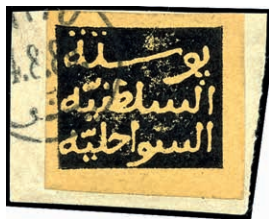 بوستة
السلطانيّة
السواحليّة